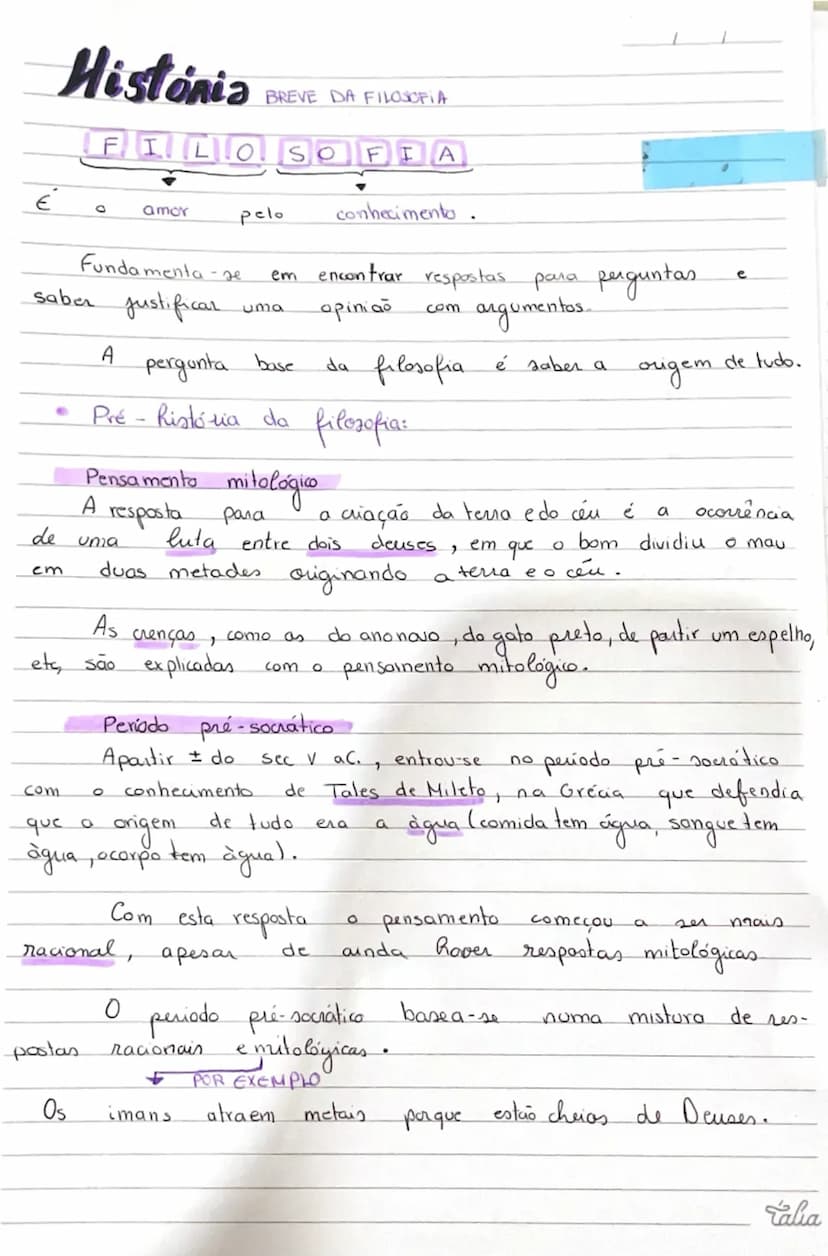 História BREVE DA FILOSOFIA
F I L O S O F I A
É o amor pelo conhecimento.
Fundamenta-se em encontrar respostas para perguntas e
saber justificar uma opinião com argumentos.
A pergunta base da filosofia é saber a origem de tudo.
• Pré-história da filosofia:
Pensamento mitológico
A resposta para a criação da terra e do céu é a ocorrência
de uma luta entre dois deuses, em que o bom dividiu o mau
em duas metades originando a terra e o céu.
As crenças, como as do ano novo, do gato preto, de partir um espelho,
etc, são explicadas com o pensamento mitológico.
Período pré-socrático
Apartir ± do sec V aC., entrou-se no periodo pré-socrático
com o conhecimento de Tales de Mileto, na Grécia que defendia
que a origem de tudo era a àgua (comida tem água, sangue tem
àgua, o corpo tem àgua).
Com esta resposta o pensamento começou a ser mais
racional, apesar de ainda haver respostas mitológicas
O periodo pré-socrático basea-se numa mistura de res-
postas racionais e mitológicas.
POR EXEMPLO
Os imans atraem metais porque estão cheios de Deuses.
Talia